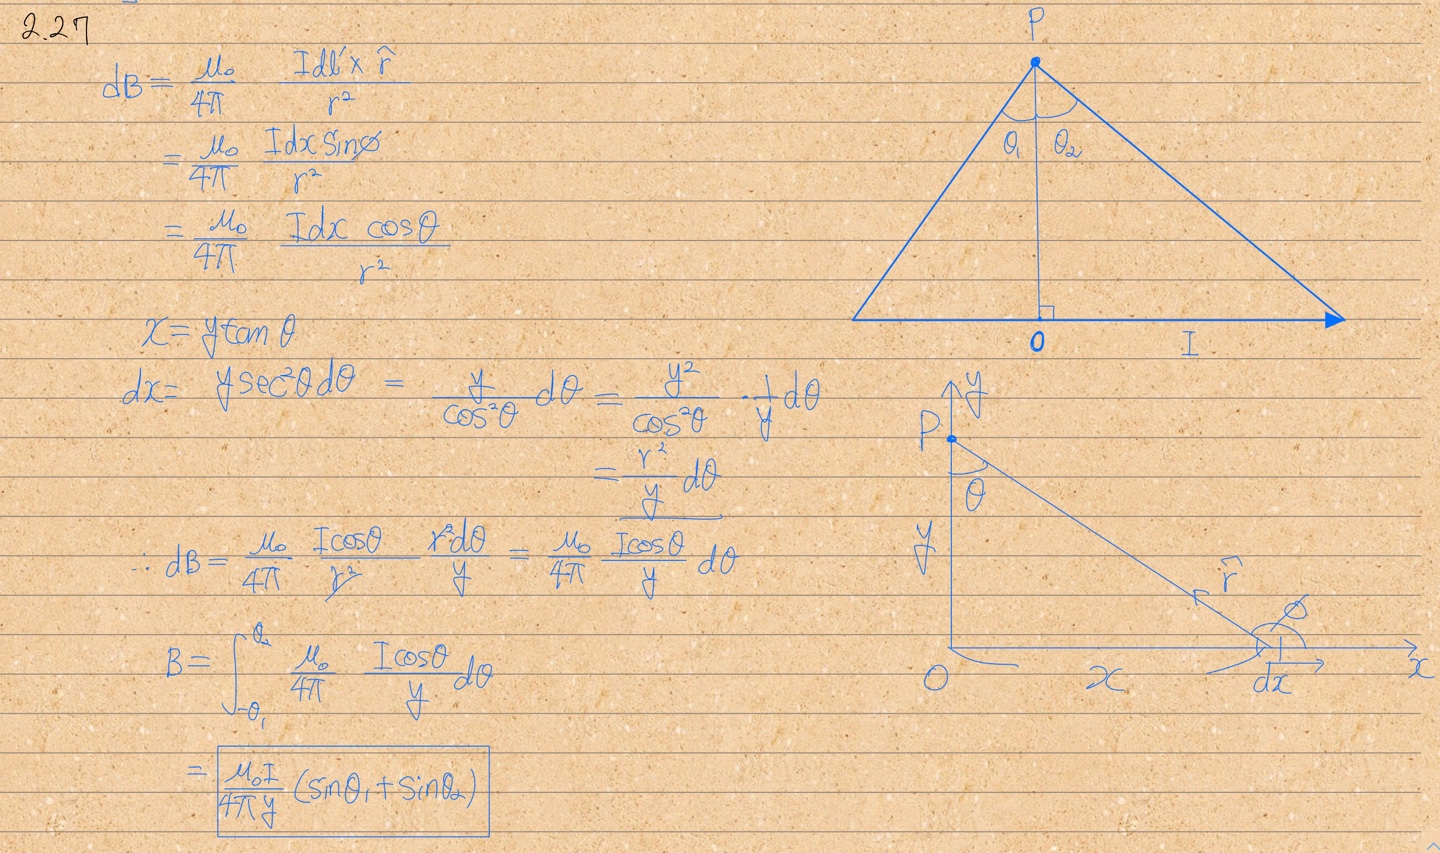 2.27
dB = μ₀/4π Idl′ × r̂/r²
= μ₀/4π Idx sinø/r²
= μ₀/4π Idx cosθ/r²
x = y tan θ
dx = y sec²θ dθ = y/cos²θ dθ = y²/cos²θ · 1/y dθ
= r²/y dθ
∴ dB = μ₀/4π Icosθ/r² r²dθ/y = μ₀/4π Icosθ/y dθ
B = ∫_{-θ₁}^{θ₂} μ₀/4π Icosθ/y dθ
= μ₀I/4πy (sinθ₁ + sinθ₂)
P
θ₁ θ₂
O I
y
P
θ
y
r̂
ø
O x dx x